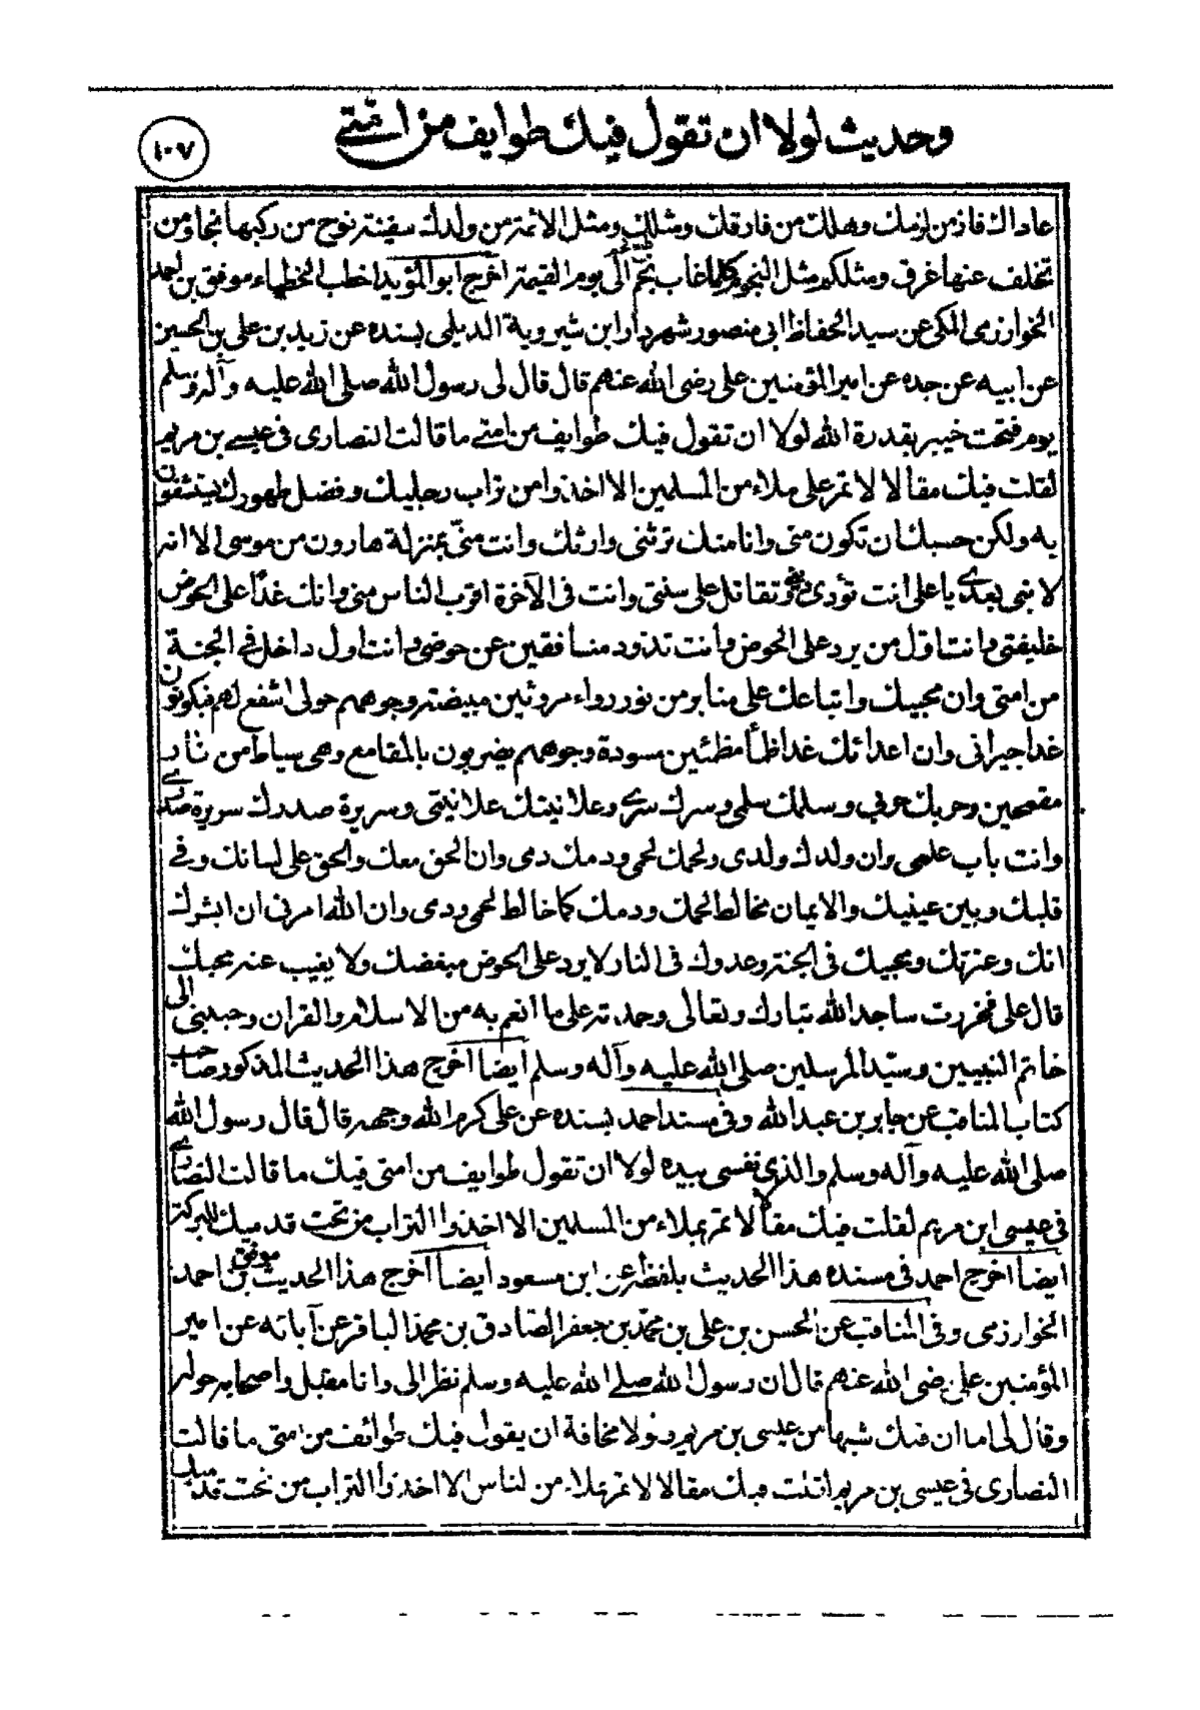 وحديث لولا ان تقول فيك طوايف من امتي
١٠٧
عاداك فاز من لزمك وهلك من فارقك ومثلك ومثل الائمة من ولدك سفينة نوح من ركبها نجا ومن
تخلف عنها غرق ومثلكم مثل النجوم كلما غاب نجم طلع نجم الى يوم القيمة اخرج ابو المؤيد اخطب الخطباء موفق بن احمد
الخوارزمى المكى عن سيد الحفاظ ابى منصور شهردار ابن شيروية الديلمى بسنده عن زيد بن على بن الحسين
عن ابيه عن جده عن امير المؤمنين على رضى الله عنهم قال قال لى رسول الله صلى الله عليه وآله وسلم
يوم فتحت خيبر بقدرة الله لولا ان تقول فيك طوايف من امتي ما قالت النصارى فى عيسى بن مريم
لقلت فيك مقالا لا تمر على ملاء من المسلمين الا اخذوا من تراب رجليك وفضل طهورك يستشفون
به ولكن حسبك ان تكون منى وانا منك ترثنى وارثك وانت منّى بمنزلة هارون من موسى الا انه
لا نبى بعدي يا على انت تؤدى دينى وتقاتل على سنتى وانت فى الآخرة اقرب الناس منى وانك غدًا على الحوض
خليفتى وانت اول من يرد على الحوض وانت تذود منافقين عن حوضى وانت اول داخل في الجنة
من امتى وان محبيك واتباعك على منابر من نور رواء مروئين مبيضة وجوههم حولى اشفع لهم فيكونون
غدا جيرانى وان اعدائك غدا ظمأ مظمئين مسودة وجوههم يضربون بالمقامع وهى سياط من نار
مقمحين وحربك حربي وسلمك سلمى وسرك سري وعلانيتك علانيتى وسريرة صدرك سريرة صدري
وانت باب علمى وان ولدك ولدى ولحمك لحمى ودمك دمى وان الحق معك والحق على لسانك وفي
قلبك وبين عينيك والايمان مخالط لحمك ودمك كما خالط لحمى ودمى وان الله امرنى ان ابشرك
انك وعترتك ومحبيك فى الجنة وعدوك فى النار لا يرد على الحوض مبغضك ولا يغيب عنه محبك
قال على فخررت ساجد الله تبارك وتعالى وحمدته على ما انعم به من الاسلام والقران وحببنى الى
خاتم النبيين وسيّد المرسلين صلى الله عليه وآله وسلم ايضا اخرج هذا الحديث المذكور صاحب
كتاب المناقب عن جابر بن عبدالله وفى مسند احمد بسنده عن على كرم الله وجهه قال قال رسول الله
صلى الله عليه وآله وسلم والذى نفسى بيده لولا ان تقول طوايف من امتى فيك ما قالت النصاري
فى عيسى ابن مريم لقلت فيك مقالا لا تمر بملاء من المسلمين الا اخذوا التراب من تحت قدميك للبركة
ايضا اخرج احمد فى مسنده هذا الحديث بلفظه عن ابن مسعود ايضا اخرج هذا الحديث موفق بن احمد
الخوارزمى وفى المناقب عن الحسن بن على بن محمّد بن جعفر الصّادق بن محمّد الباقر عن آبائه عن امير
المؤمنين على رضى الله عنهم قال ان رسول الله صلى الله عليه وسلم نظر الى وانا مقبل واصحابه حوله
وقال لى اما ان فيك شبها من عيسى بن مريم ولولا مخافة ان يقول فيك طوائف من امتى ما قالت
النصارى فى عيسى بن مريم لقلت فيك مقالا لا تمر بملاء من الناس الا اخذوا التراب من تحت قدميك